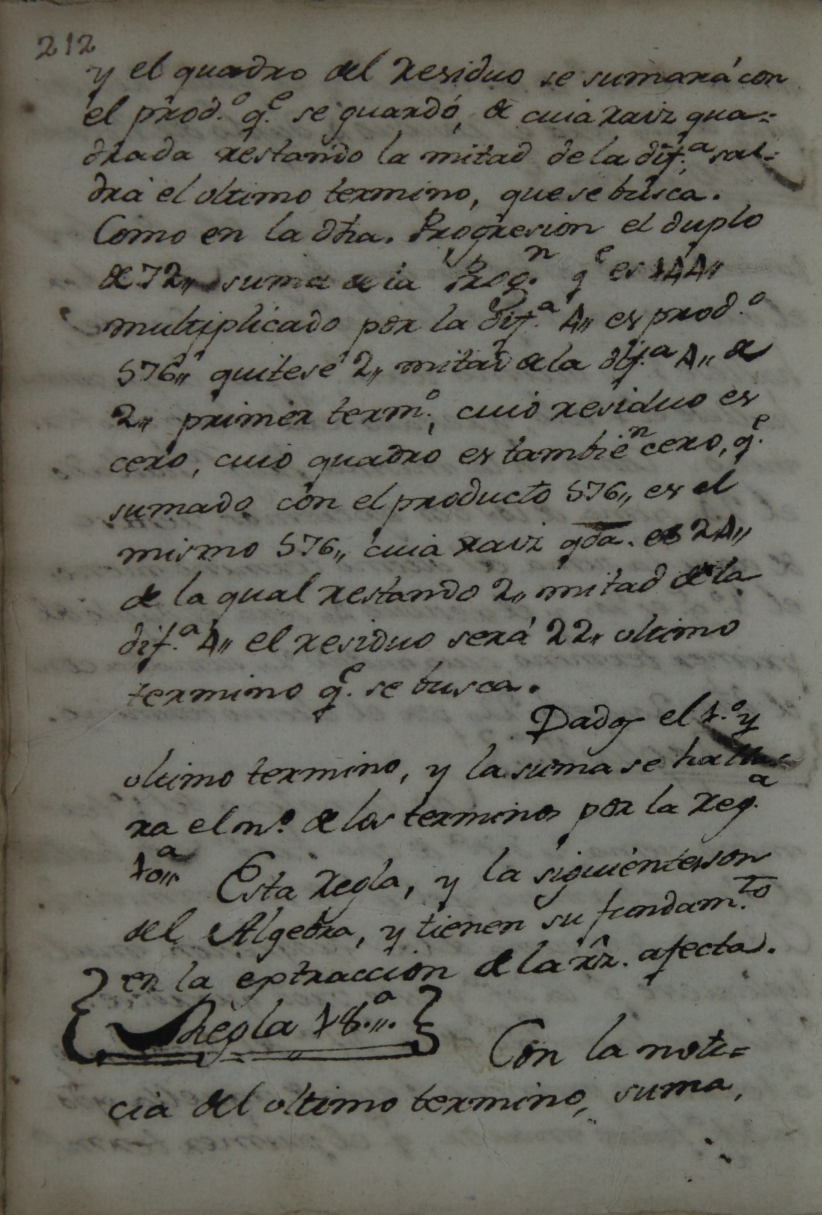 212
y el quadro del residuo se sumará con
el prod.º q.e se guardó, de cuia raiz qua=
drada restando la mitad de la dif.a sal=
drá el ultimo termino, que se busca.
Como en la dha. Progresion el duplo
de 72,, suma de la Prog.n q.e es 144,,
multiplicado por la dif.a 4,, es prod.º
576,, quitese 2,, mitad de la dif.a 4,, de
2,, primer term.º, cuio residuo es
cero, cuio quadro es tambien cero, q.e
sumado con el producto 576,, es el
mismo 576,, cuia raiz qda. es 24,,
de la qual restando 2,, mitad de la
dif.a 4,, el residuo será 22,, ultimo
termino q.e se busca.
Dados el 1.º y
ultimo termino, y la suma se halla=
ra el n.º de los terminos por la Reg.a
10.a,, Esta Regla, y la siguiente son
del Algebra, y tienen su fundam.to
en la extraccion de la rz. afecta.
Regla 18.a,,.
Con la noti=
cia del ultimo termino, suma,